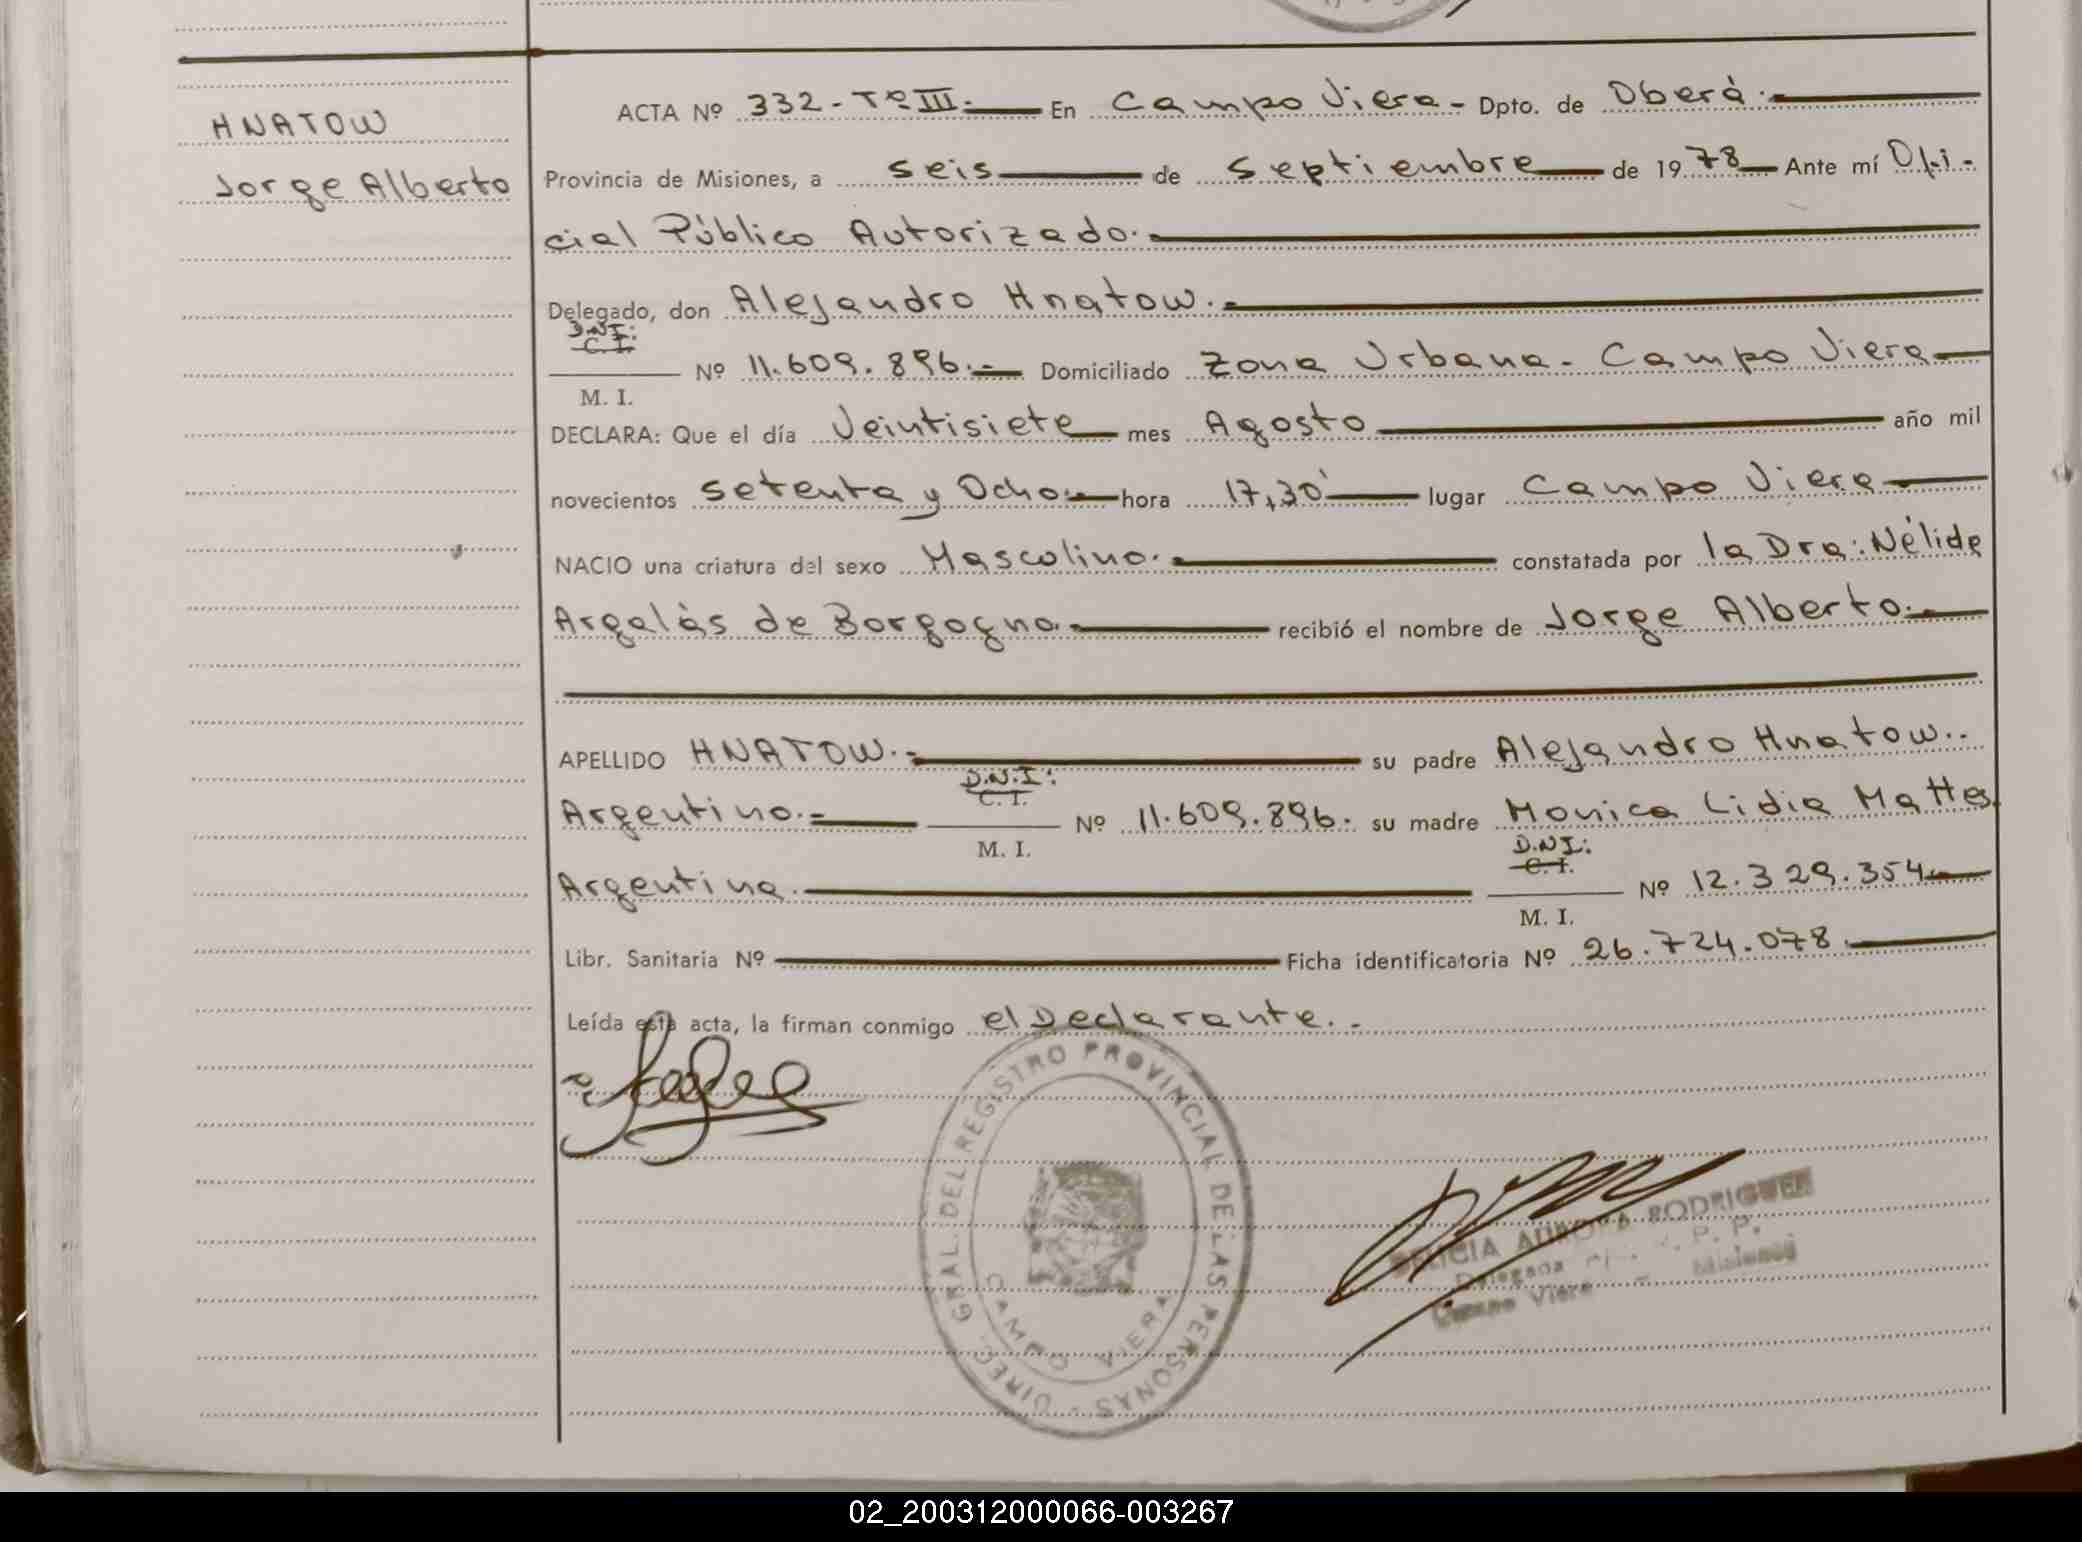 HNATOW
Jorge Alberto
ACTA Nº 332-Tº III.- En Campo Viera- Dpto. de Oberá.
Provincia de Misiones, a seis de Septiembre de 1978 Ante mí Ofi-
cial Público Autorizado.
Delegado, don Alejandro Hnatow.
D.N.I:
C. I.
M. I.
Nº 11.609.896.- Domiciliado Zona Urbana- Campo Viera
DECLARA: Que el día Veintisiete mes Agosto año mil
novecientos setenta y Ocho.- hora 17,30' lugar Campo Viera
NACIO una criatura del sexo Masculino.- constatada por la Dra: Nélida
Argalás de Borgogno.- recibió el nombre de Jorge Alberto.-
APELLIDO HNATOW.- su padre Alejandro Hnatow..
D.N.I:
C. I.
Argentino.- Nº 11.609.896. su madre Monica Lidia Mattes
M. I.
D.N.I:
C. I.
Argentina. Nº 12.329.354
M. I.
Libr. Sanitaria Nº Ficha identificatoria Nº 26.724.078
Leída esta acta, la firman conmigo el Declarante.-
DIREC. GRAL. DEL REGISTRO PROVINCIAL DE LAS PERSONAS -
CAMPO VIERA
AURORA RODRIGUEZ
Delegada R. P. P.
Campo Viera - Misiones
02_200312000066-003267